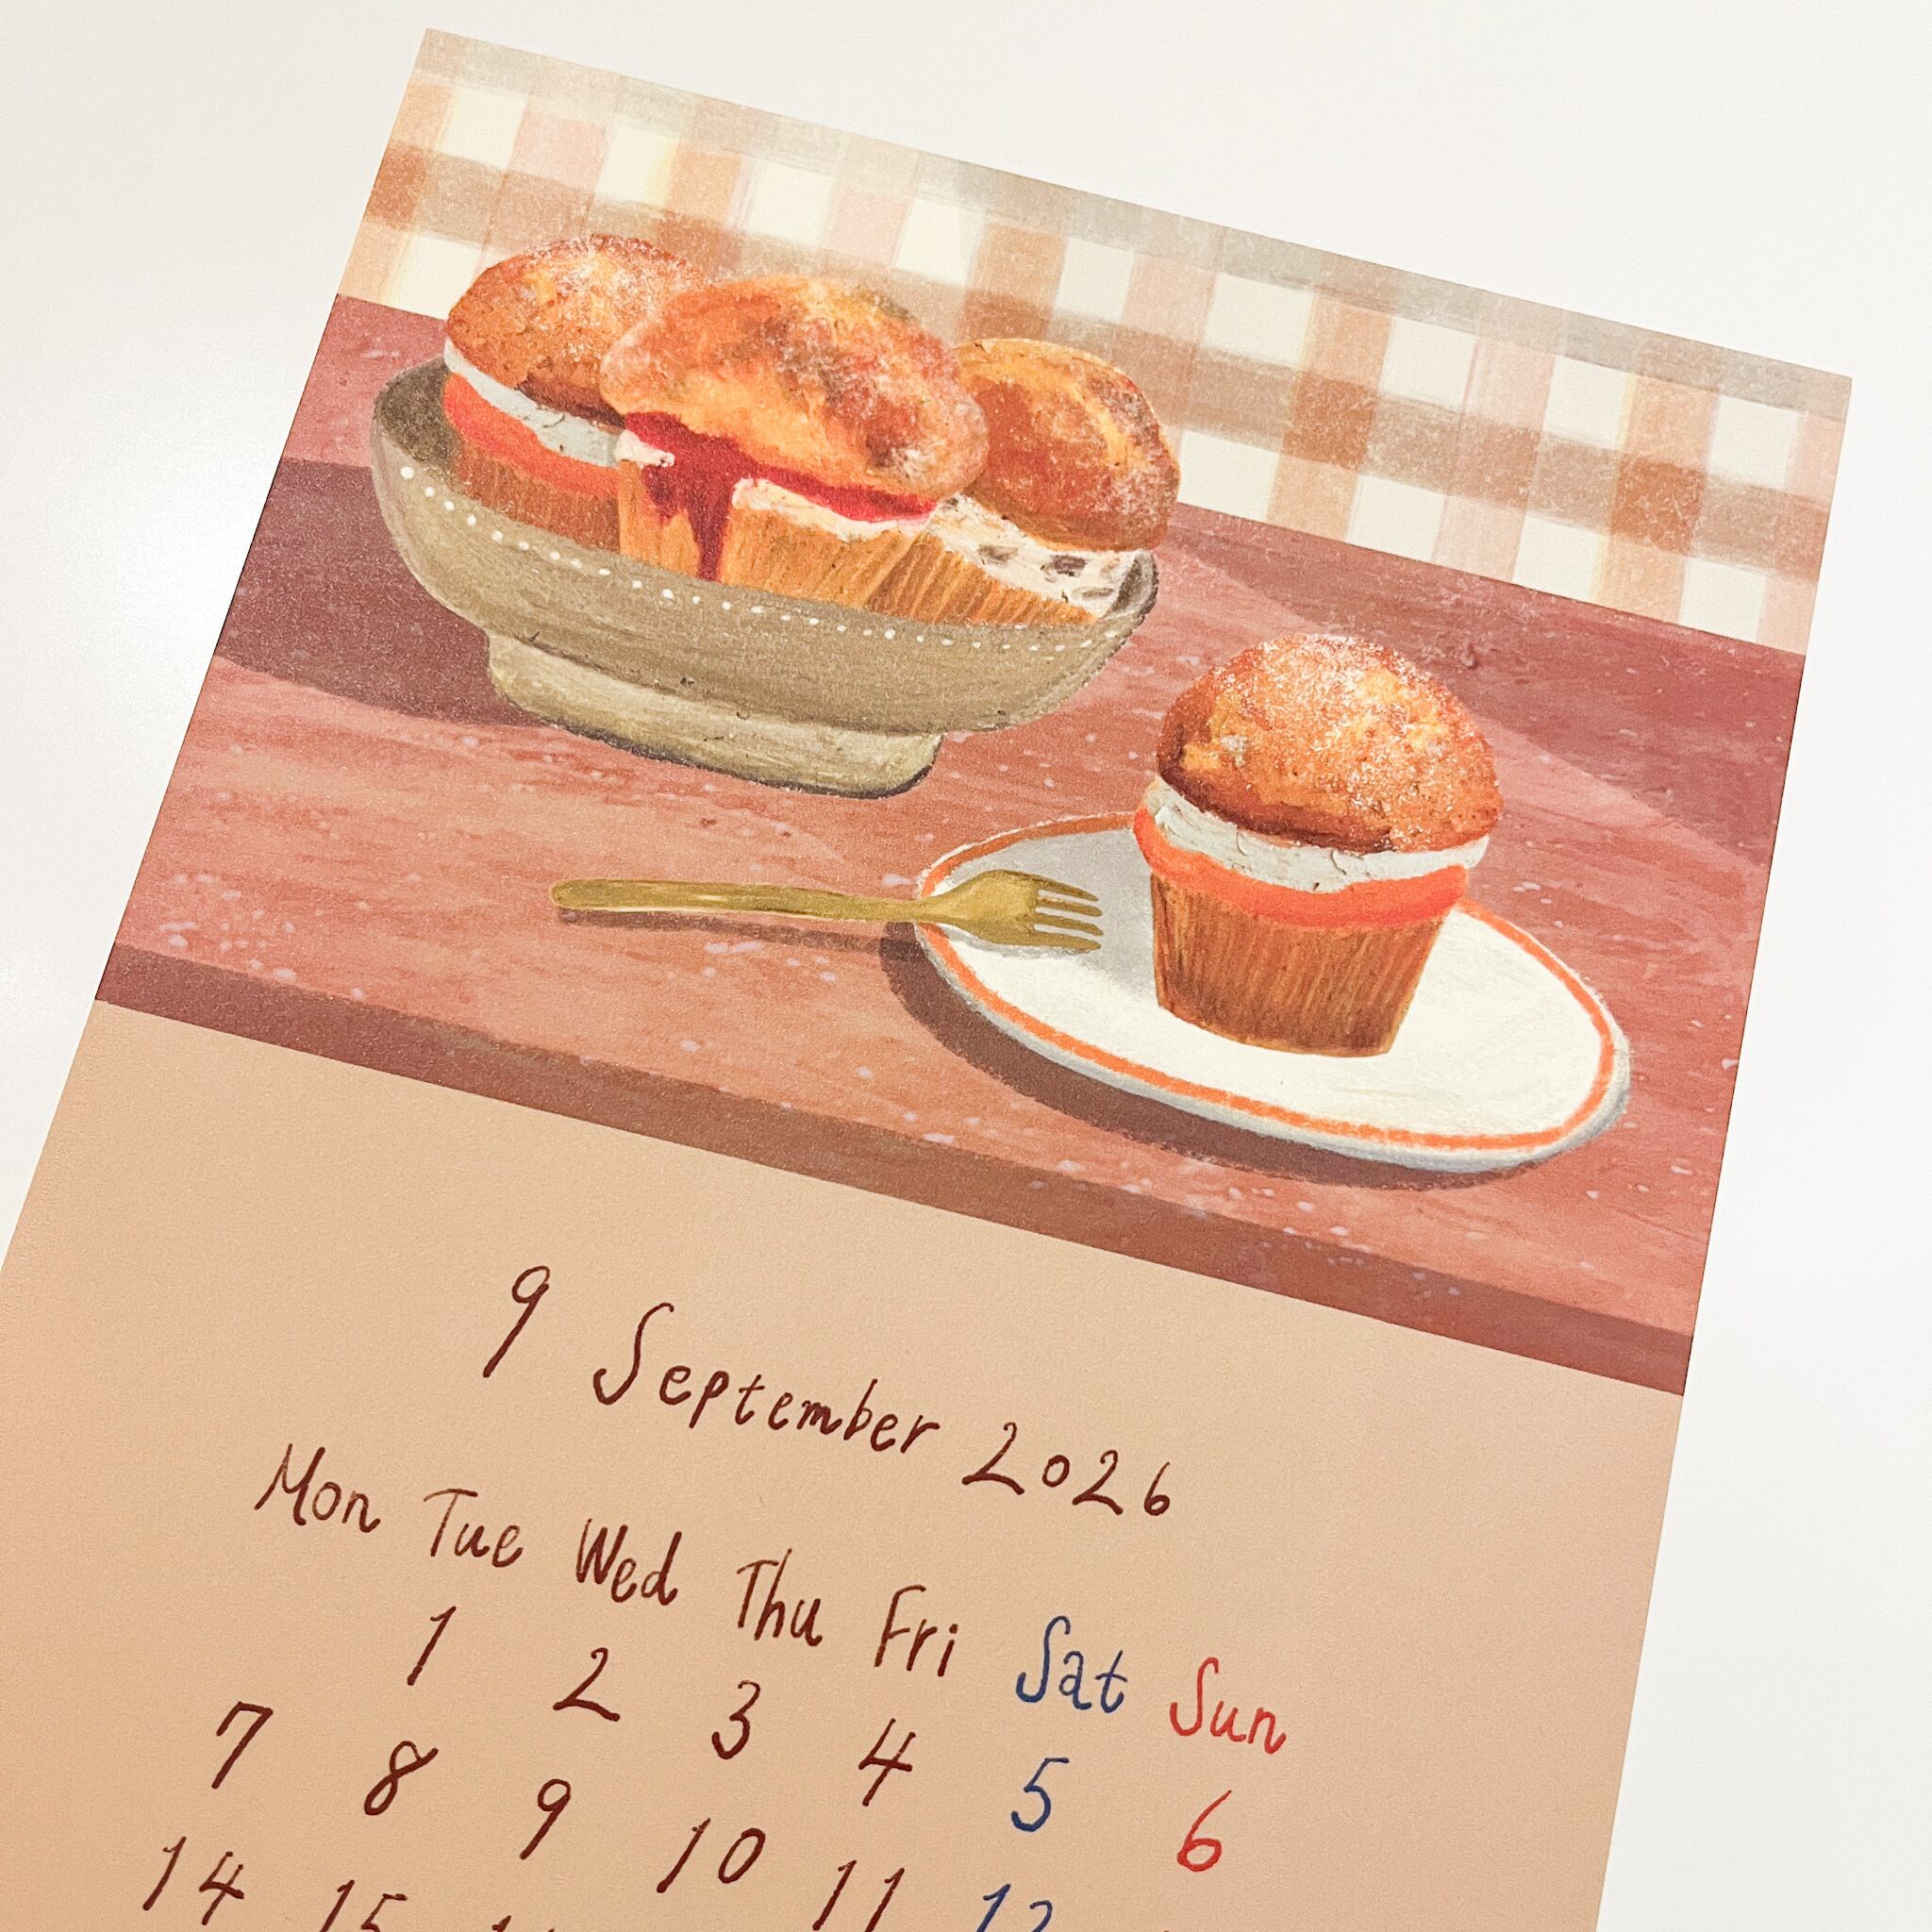 9 September 2026
Mon Tue Wed Thu Fri Sat Sun
1 2 3 4 5 6
7 8 9 10 11 12
14 15